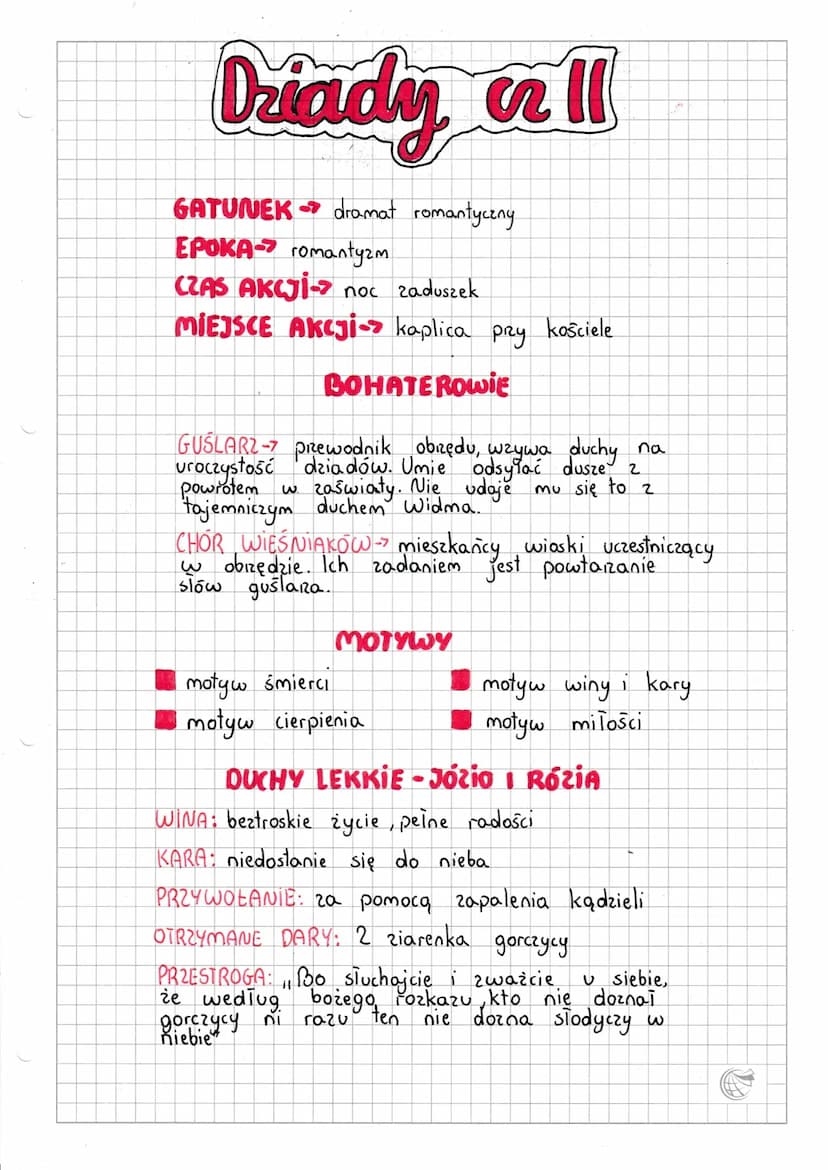 Dziady cz II
GATUNEK → dramat romantyczny
EPOKA → romantyzm
CZAS AKCJI → noc zaduszek
MIEJSCE AKCJI → kaplica przy kościele
BOHATEROWIE
GUŚLARZ → przewodnik obrzędu, wzywa duchy na
uroczystość dziadów. Umie odsyłać dusze z
powrotem w zaświaty. Nie udaje mu się to z
tajemniczym duchem Widma.
CHÓR WIEŚNIAKÓW → mieszkańcy wioski uczestniczący
w obrzędzie. Ich zadaniem jest powtarzanie
słów guślarza.
MOTYWY
motyw śmierci motyw winy i kary
motyw cierpienia motyw miłości
DUCHY LEKKIE - JÓZIO I RÓZIA
WINA: beztroskie życie, pełne radości
KARA: niedostanie się do nieba
PRZYWOŁANIE: za pomocą zapalenia kądzieli
OTRZYMANE DARY: 2 ziarenka gorczycy
PRZESTROGA: „Bo słuchajcie i zważcie u siebie,
że według bożego rozkazu, kto nie doznał
gorczycy ni razu ten nie dozna słodyczy w
niebie"